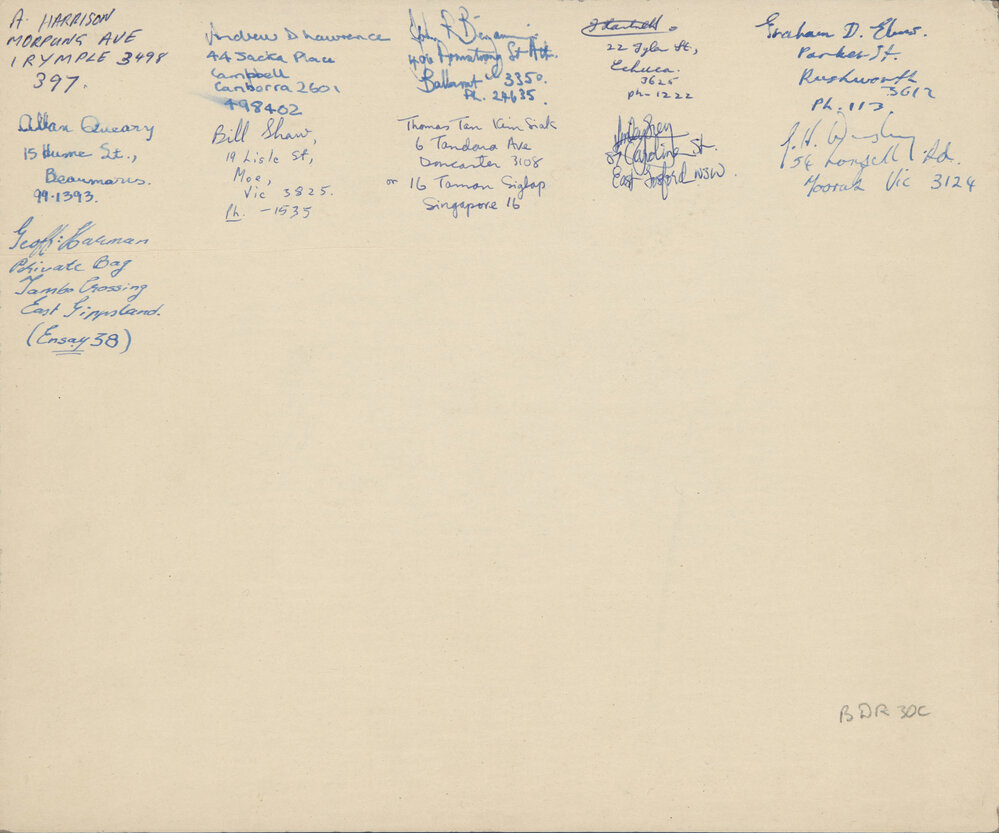 A. HARRISON
MORPUNG AVE
IRYMPLE 3498
397.
Andrew D Lawrence
44 Jacka Place
Campbell
Canberra 2601
498402
John R Benjamin
406 Armstrong St Nth.
Ballarat 3350.
Ph. 24635.
22 Tyler St,
Echuca.
3625
ph-1222
Graham D. Elms.
Parker St.
Rushworth
3612
Ph. 113.
Allan Queary
15 Hume St.,
Beaumaris.
99.1393.
Bill Shaw,
19 Lisle St,
Moe,
Vic 3825.
Ph. -1535
Thomas Tan Kim Siak
6 Tandara Ave
Doncaster 3108
or 16 Taman Siglap
Singapore 16
Caroline St.
East Gosford NSW.
J. H.
Rd.
Vic 3124
Geoff: Harman
Private Bag
Tambo Crossing
East Gippsland.
(Ensay 38)
BDR 30C